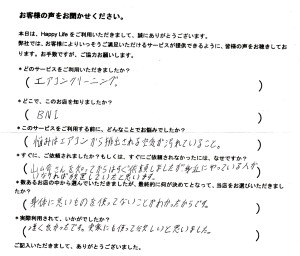 お客様の声をお聞かせください。
本日は、Happy Lifeをご利用いただきまして、誠にありがとうございます。
弊社では、お客様によりいっそうご満足いただけるサービスが提供できるように、皆様の声をお聴きしております。お手数ですが、ご協力お願いします。
*どのサービスをご利用いただきましたか?
(エアコンクリーニング。)
*どこで、このお店を知りましたか?
(BNI)
*このサービスをご利用する前に、どんなことでお悩みでしたか?
(悩みはエアコンから排出される空気が汚れていること。)
*すぐに、ご依頼されましたか?もしくは、すぐにご依頼されなかったには、なぜですか?
さんを知ってからはすぐ依頼しましたが身近にやっている人が
いなければ放置していたと思います。
*数あるお店の中から選んでいただきましたが、最終的に何が決めてとなって、当店をお選びいただきましたか?
(身体に悪いものを使ってないことがわかったからです。)
*実際利用されて、いかがでしたか?
(凄く良かったです。実家にも使って欲しいと思いました。)
ご記入いただきまして、ありがとうございました。